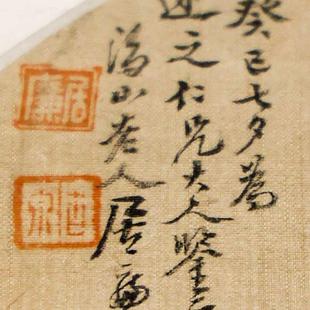 癸巳七夕為
之仁兄大人鑒
隔山老人居廉
居廉
古泉